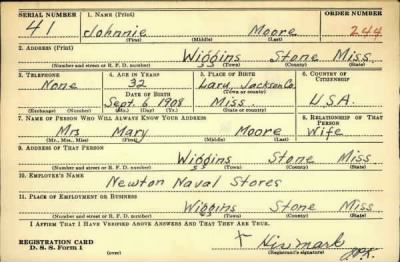 SERIAL NUMBER 1. NAME (Print) ORDER NUMBER
41 Johnnie Moore 244
(First) (Middle) (Last)
2. ADDRESS (Print)
Wiggins Stone Miss.
(Number and street or R. F. D. number) (Town) (County) (State)
3. TELEPHONE 4. AGE IN YEARS 5. PLACE OF BIRTH 6. COUNTRY OF CITIZENSHIP
None 32 Jackson Co.
DATE OF BIRTH (Town or county)
Sept. 6, 1908 Miss. U.S.A.
(Exchange) (Number) (Mo.) (Day) (Yr.) (State or country)
7. NAME OF PERSON WHO WILL ALWAYS KNOW YOUR ADDRESS 8. RELATIONSHIP OF THAT PERSON
Mrs Mary Moore Wife
(Mr., Mrs., Miss) (First) (Middle) (Last)
9. ADDRESS OF THAT PERSON
Wiggins Stone Miss
(Number and street or R. F. D. number) (Town) (County) (State)
10. EMPLOYER'S NAME
Newton Naval Stores
11. PLACE OF EMPLOYMENT OR BUSINESS
Wiggins Stone Miss
(Number and street or R. F. D. number) (Town) (County) (State)
I AFFIRM THAT I HAVE VERIFIED ABOVE ANSWERS AND THAT THEY ARE TRUE.
REGISTRATION CARD
D. S. S. Form 1
X His mark
(Registrant's signature)